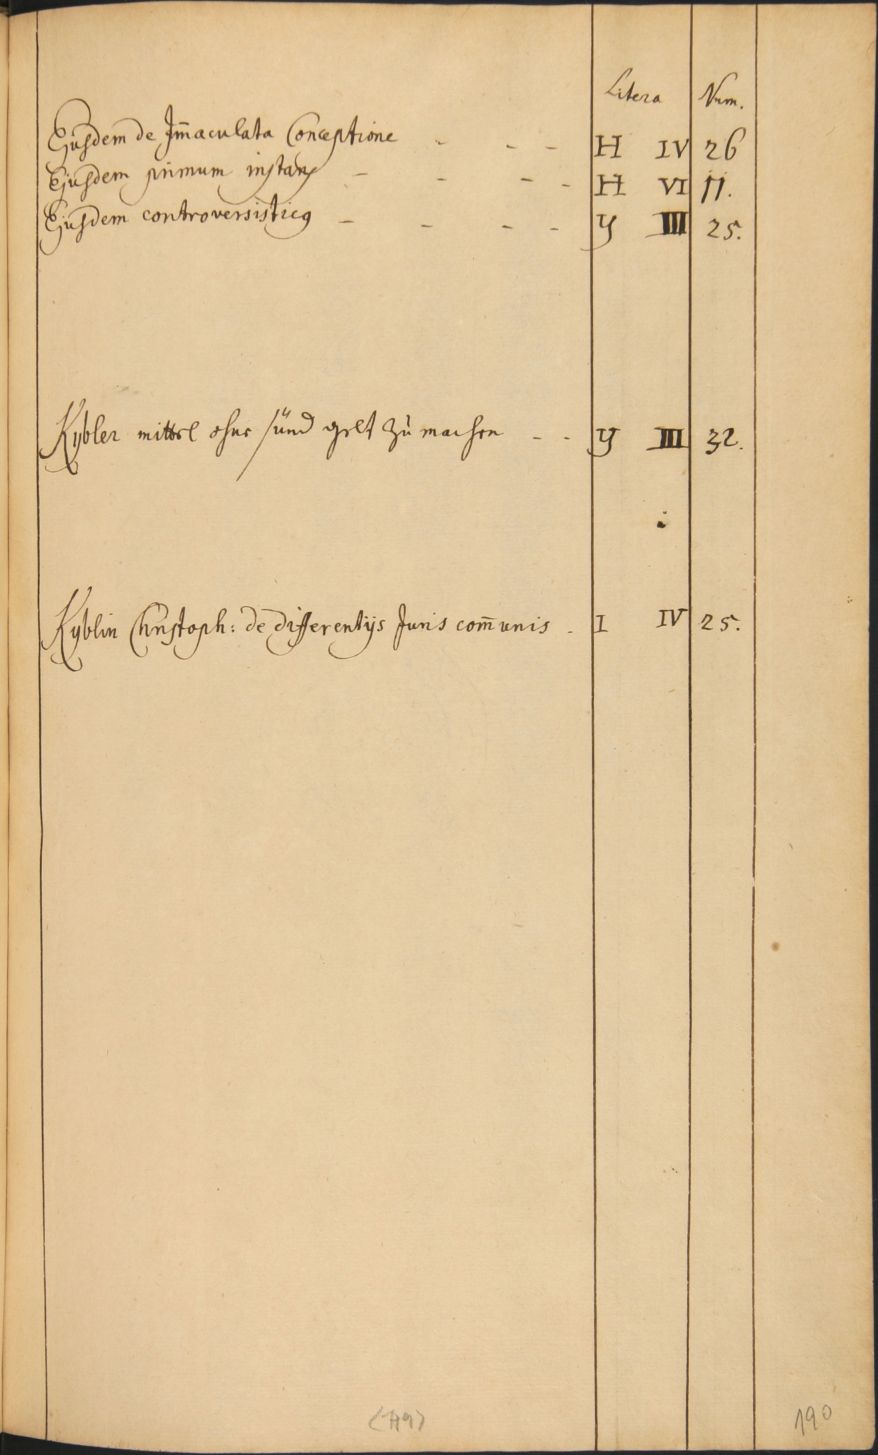 Litera Num.
Ejusdem de Im̄aculata Conceptione - - - H IV 26
Ejusdem primum instans - - - - H VI 11.
Ejusdem controversisticg - - - - Y III 25.
Kybler mittel ohne sünd gelt zu machen - - Y III 32.
Kyblin Christoph: de differentijs Juris com̄unis - I IV 25.
190